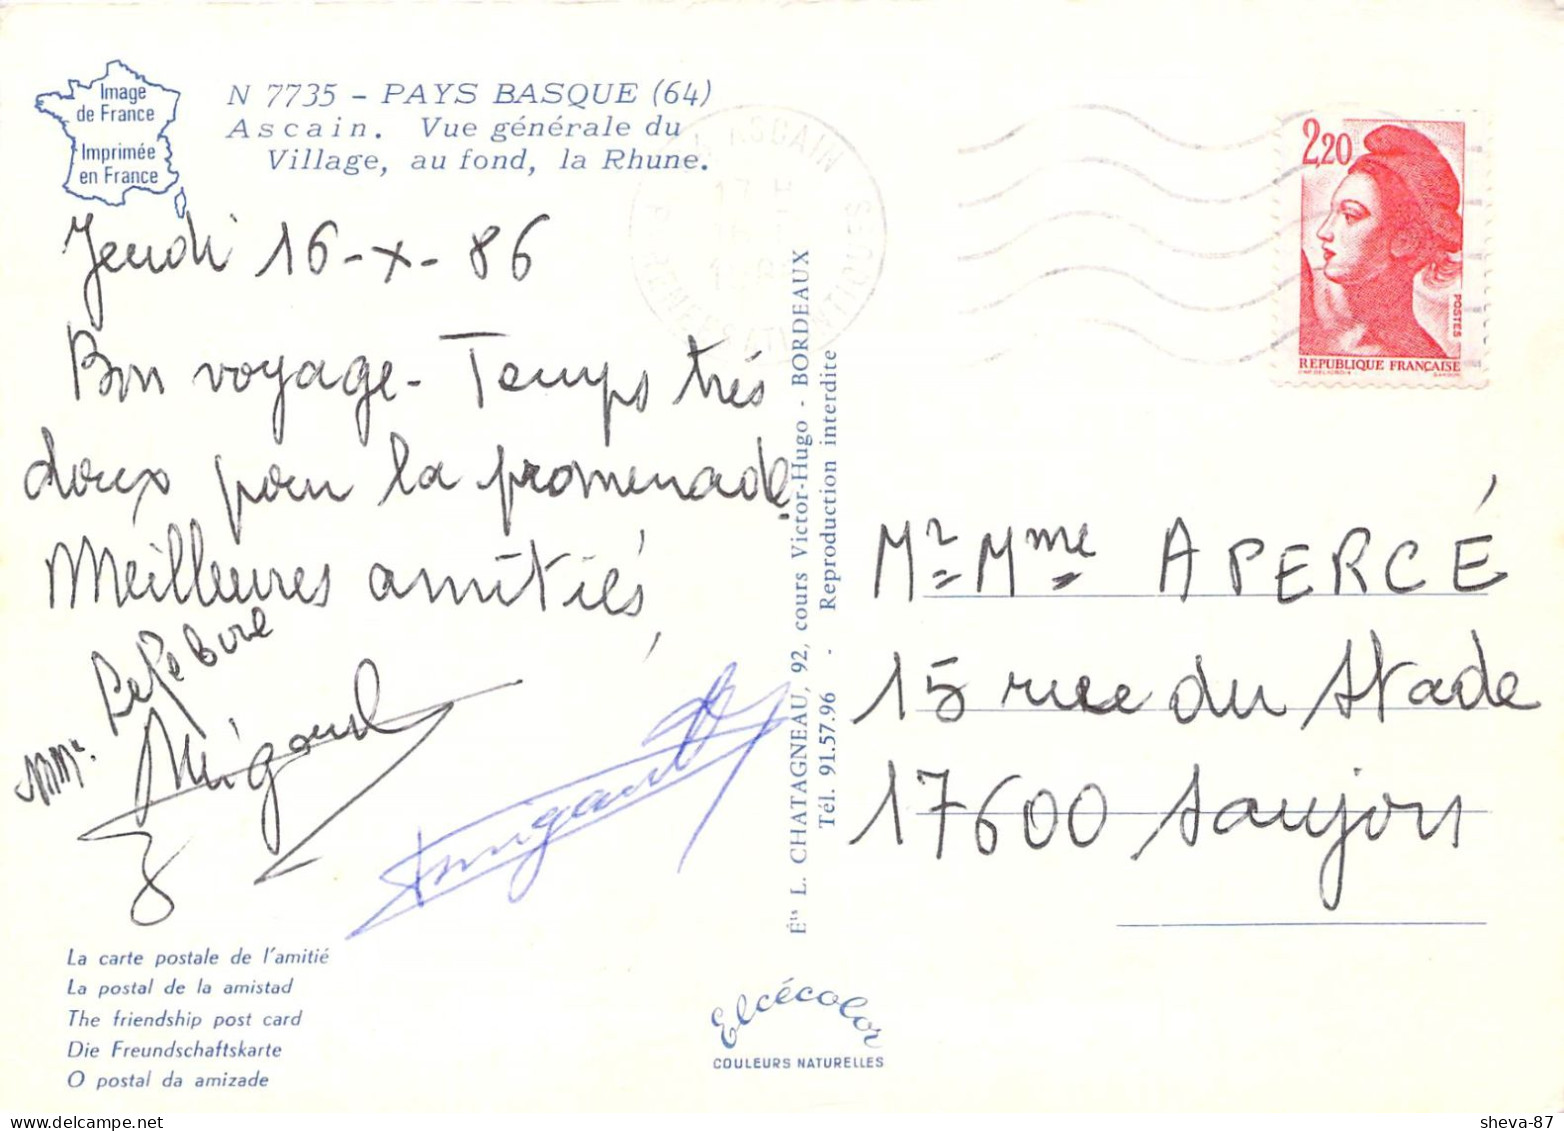 Image
de France
Imprimée
en France
N 7735 - PAYS BASQUE (64)
Ascain. Vue générale du
Village, au fond, la Rhune.
ASCAIN
17 H
2,20
POSTES
REPUBLIQUE FRANÇAISE
Jeudi 16-X-86
Bon voyage - Temps très
doux pour la promenade.
Meilleures amitiés,
Mme Lefebvre
Éts L. CHATAGNEAU, 92, cours Victor-Hugo - BORDEAUX
Tél. 91.57.96 - Reproduction interdite
Mr Mme APERCÉ
15 rue du Stade
17600 Saujon
La carte postale de l'amitié
La postal de la amistad
The friendship post card
Die Freundschaftskarte
O postal da amizade
Elcécolor
COULEURS NATURELLES
sheva-87